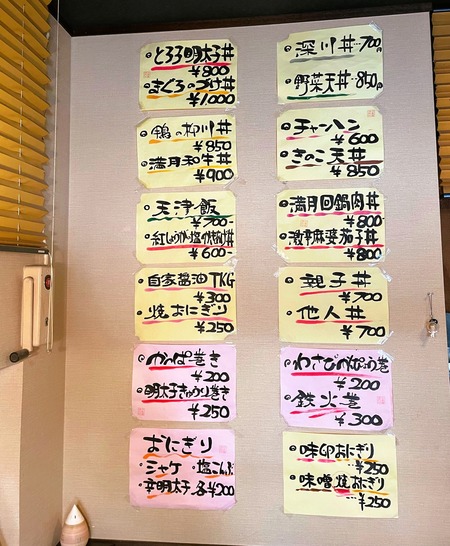 とろろ明太子丼
¥800
まぐろのづけ丼
¥1000
鴨の柳川丼
¥850
満月和牛丼
¥900
天津飯
¥700-
紅しょうが塩やきそば丼
¥600-
自家醤油TKG
¥300
焼おにぎり
¥250
かっぱ巻き
¥200
明太子きゅうり巻き
¥250
おにぎり
・シャケ ・塩こんぶ
・辛明太子 各¥200
深川丼…700円
野菜天丼…850円
チャーハン
¥600
きのこ天丼
¥850
満月回鍋肉丼
¥800
激辛麻婆茄子丼
¥800
親子丼
¥700
他人丼
¥700
わさびかんぴょう巻
¥200
鉄火巻
¥300
味卵おにぎり
…¥250
味噌焼おにぎり
…¥250